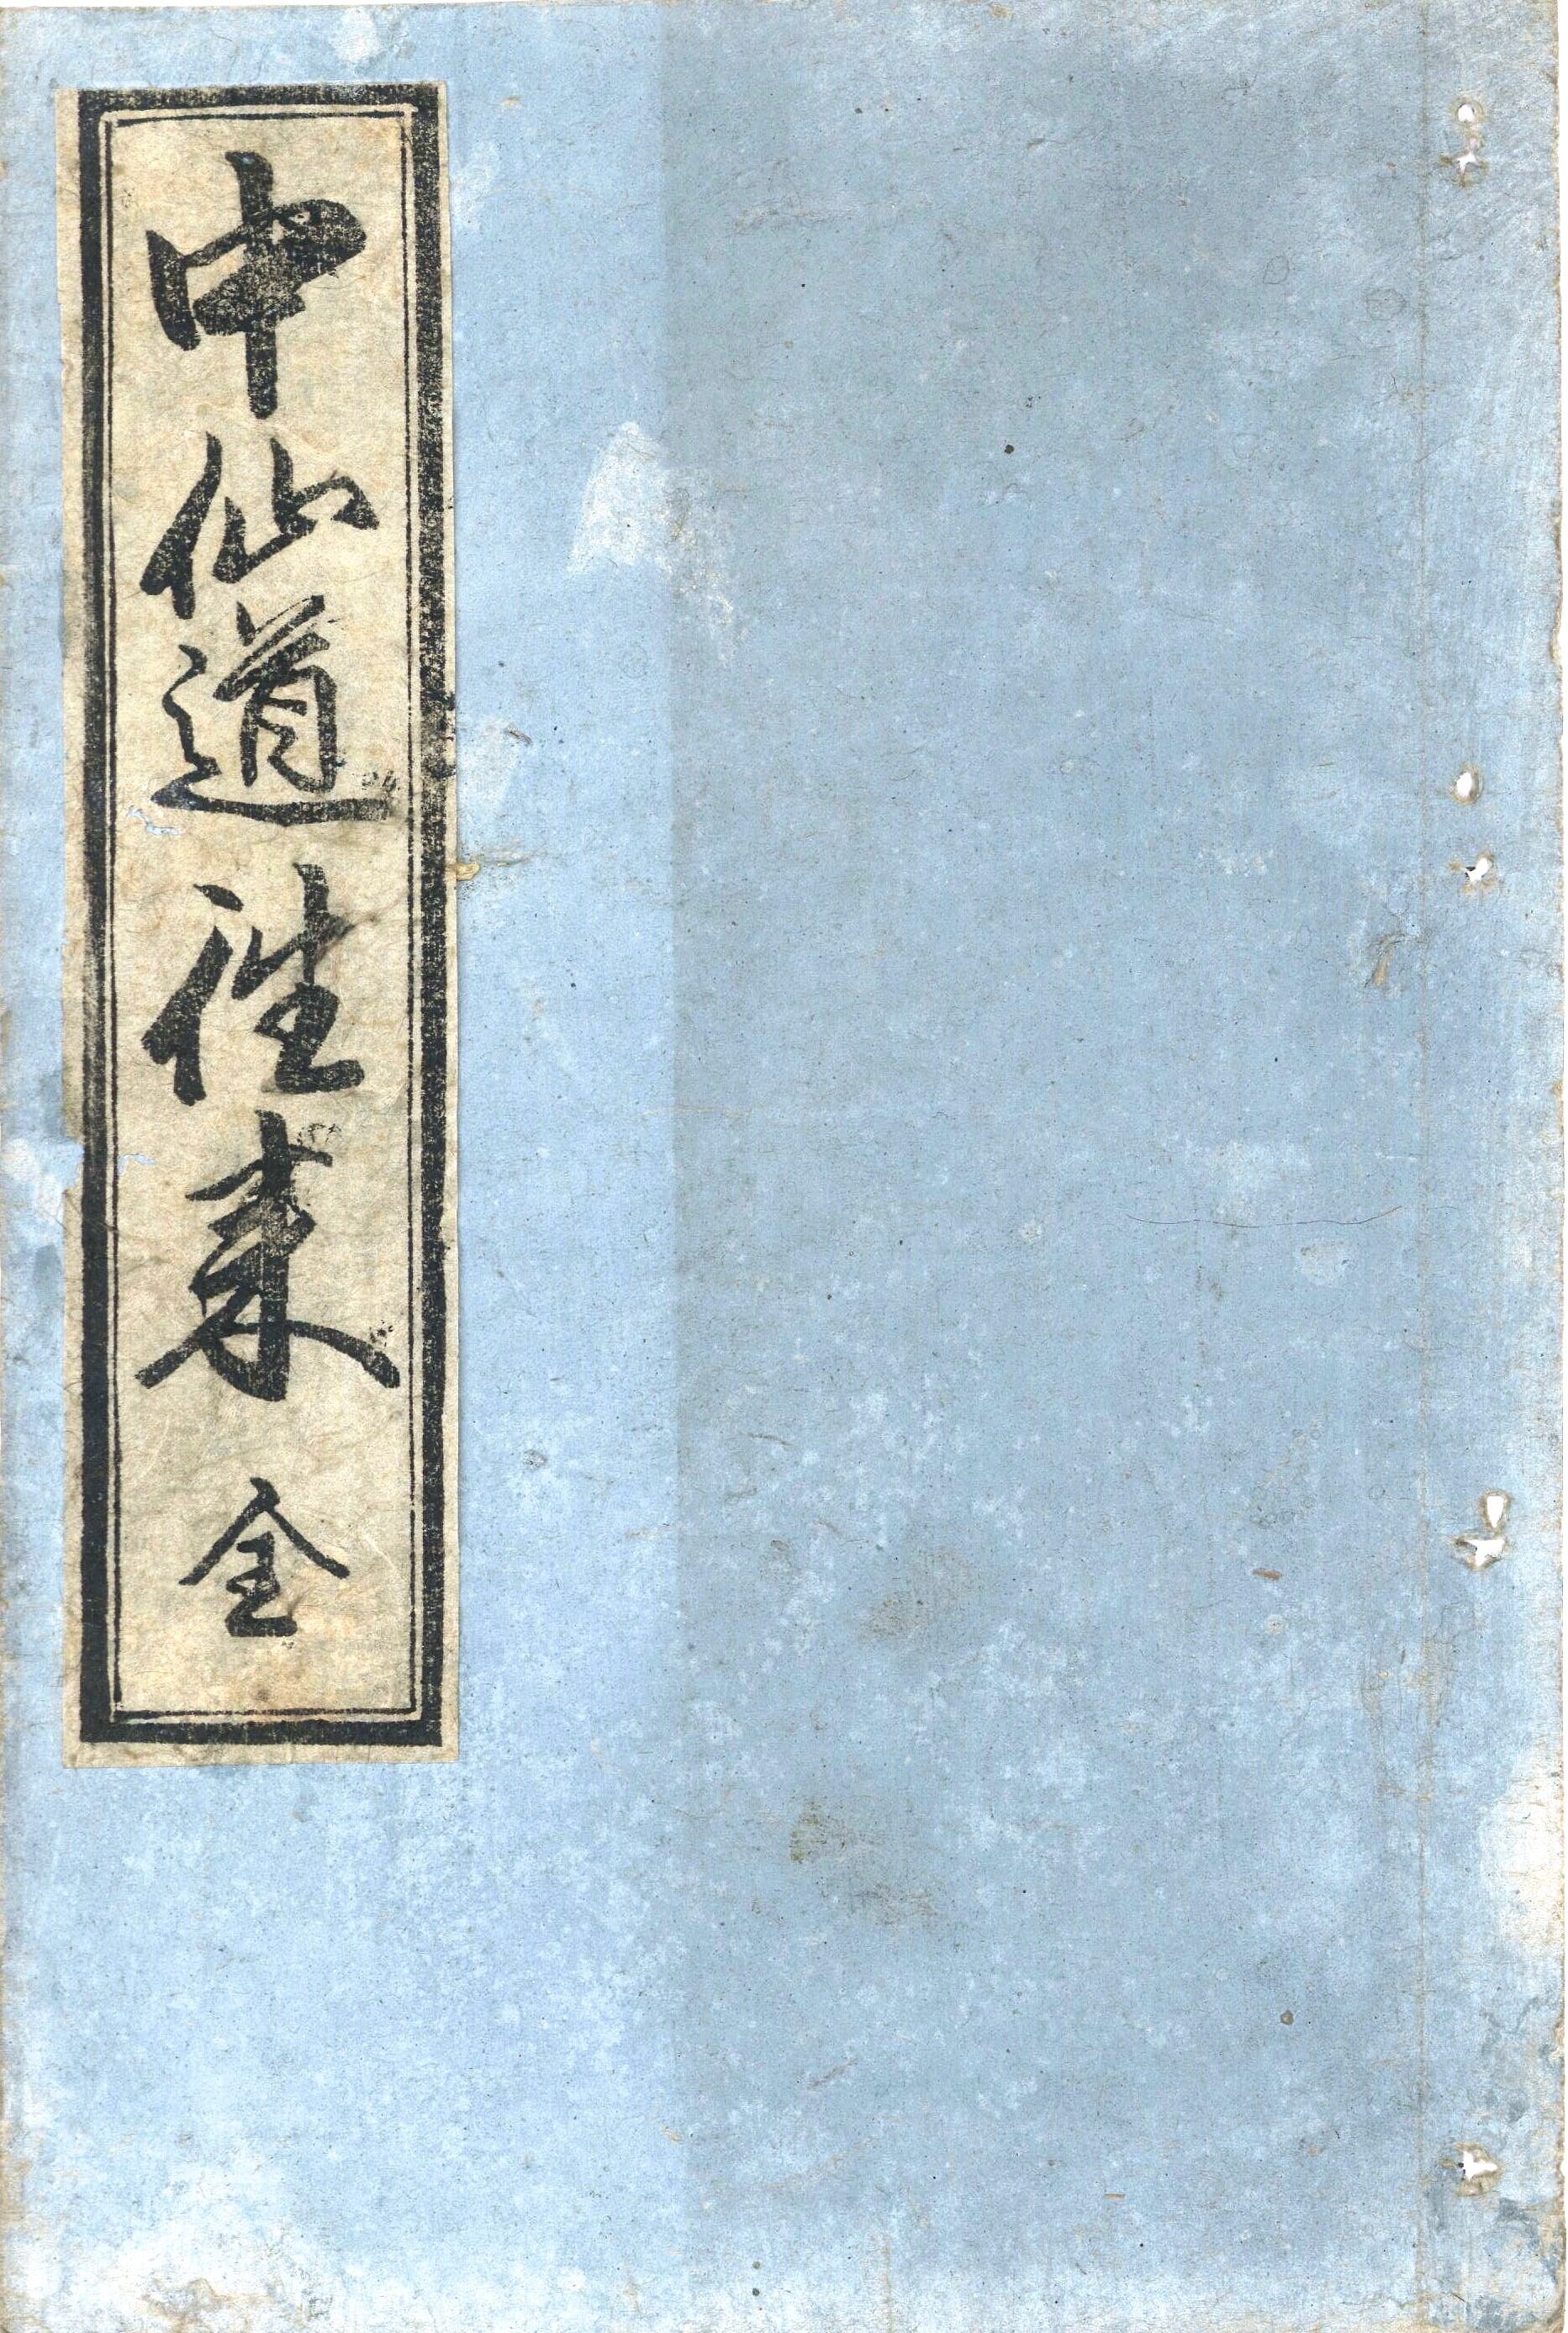 中仙道往来 全